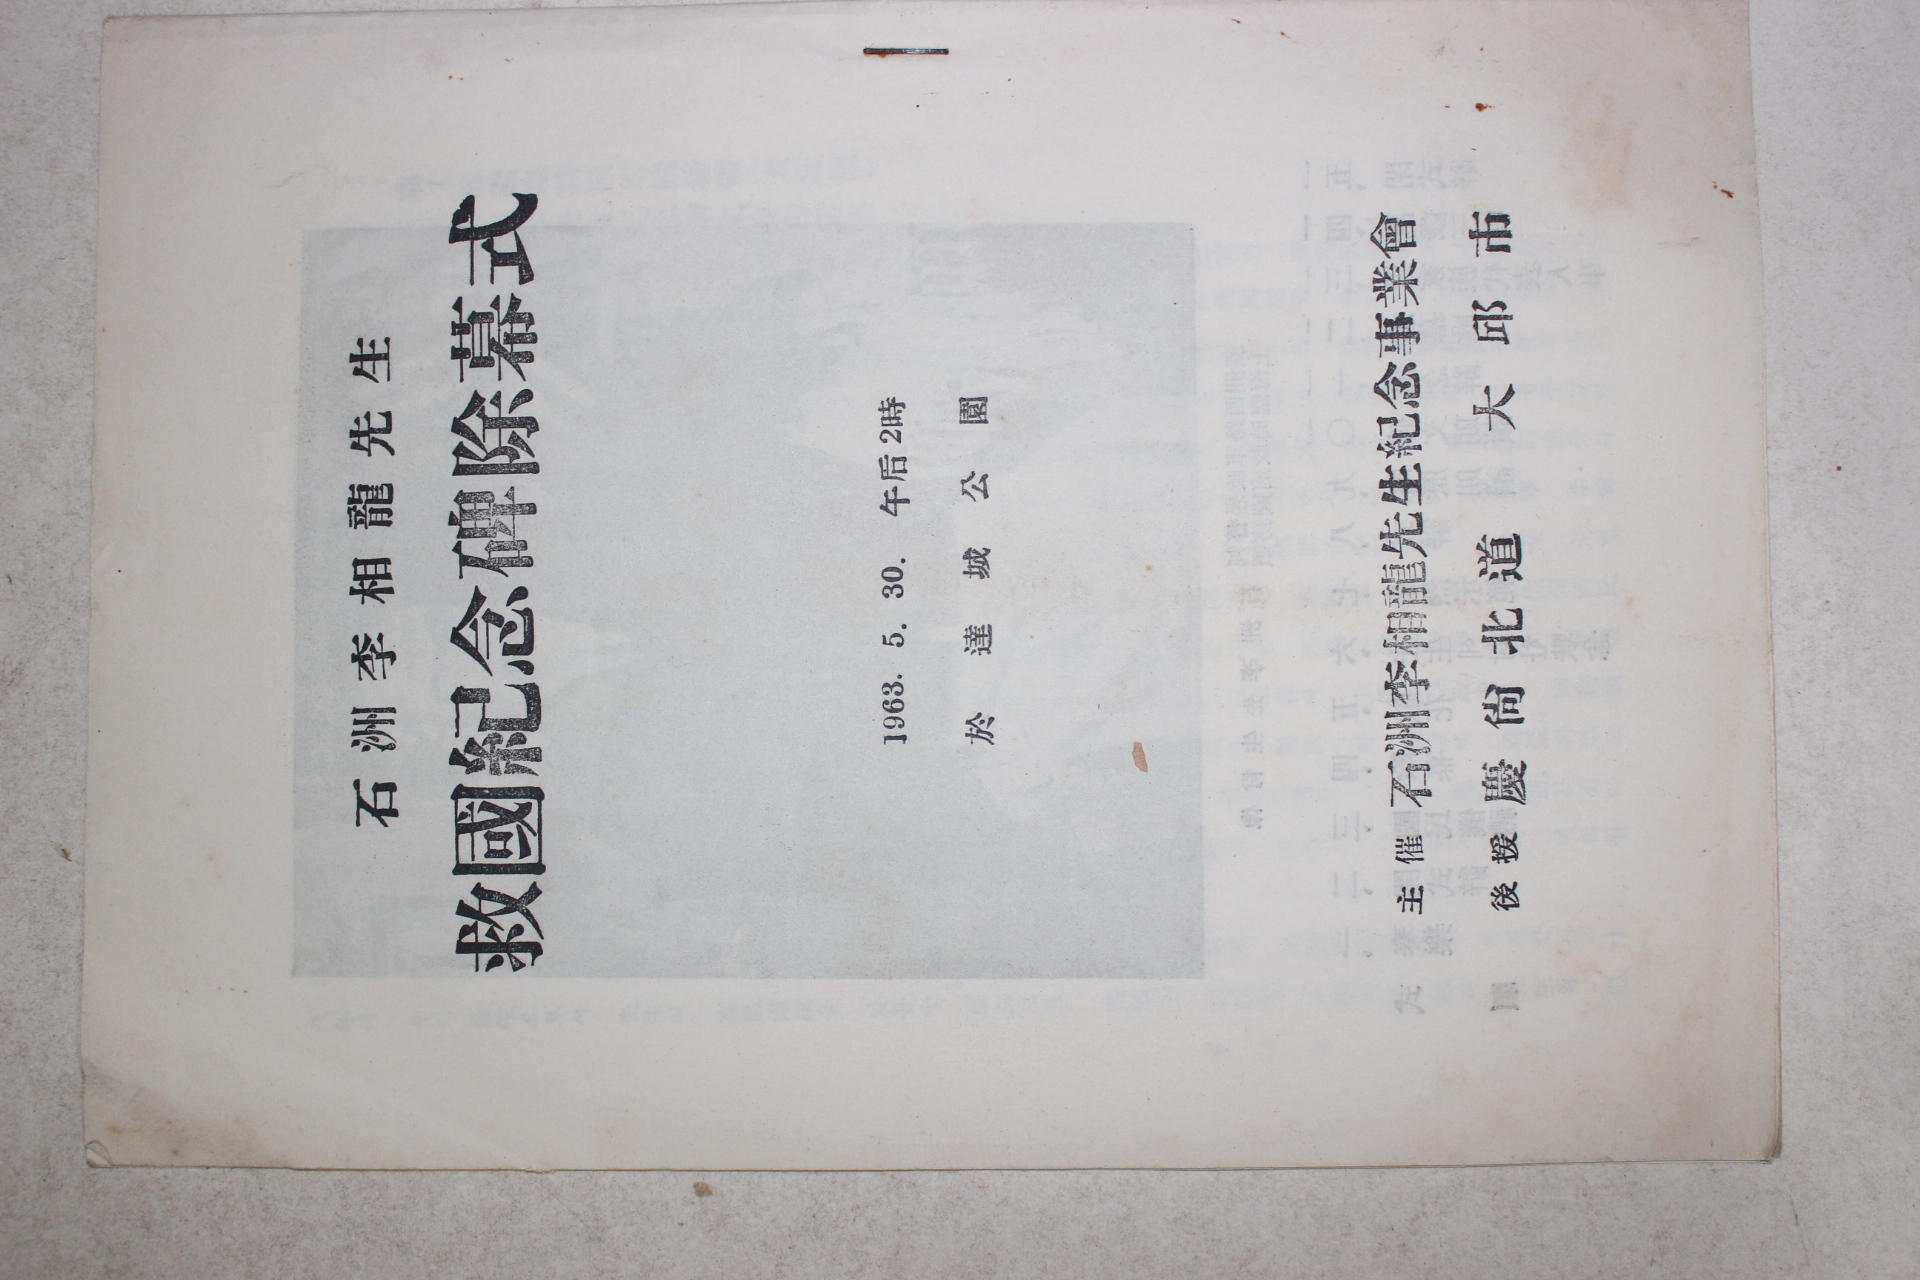 石洲李相龍先生
救國紀念碑除幕式
1963. 5. 30. 午后2時
於達城公園
主催 石洲李相龍先生紀念事業會
後援 慶尙北道 大邱市